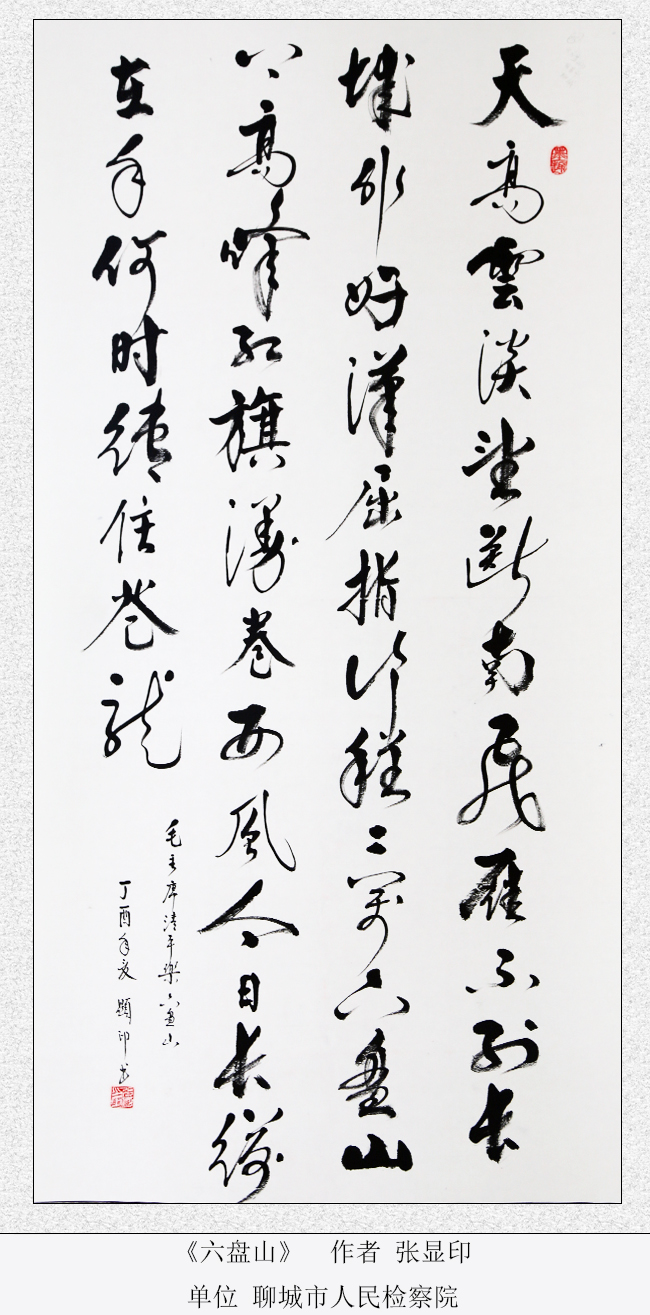 天高雲淡望断南飛雁不到长
城非好漢屈指行程二萬六盘山
上高峰红旗漫卷西風今日长缨
在手何时缚住苍龍
毛主席清平樂六盘山
丁酉年夏 顯印书
《六盘山》 作者 张显印
单位 聊城市人民检察院